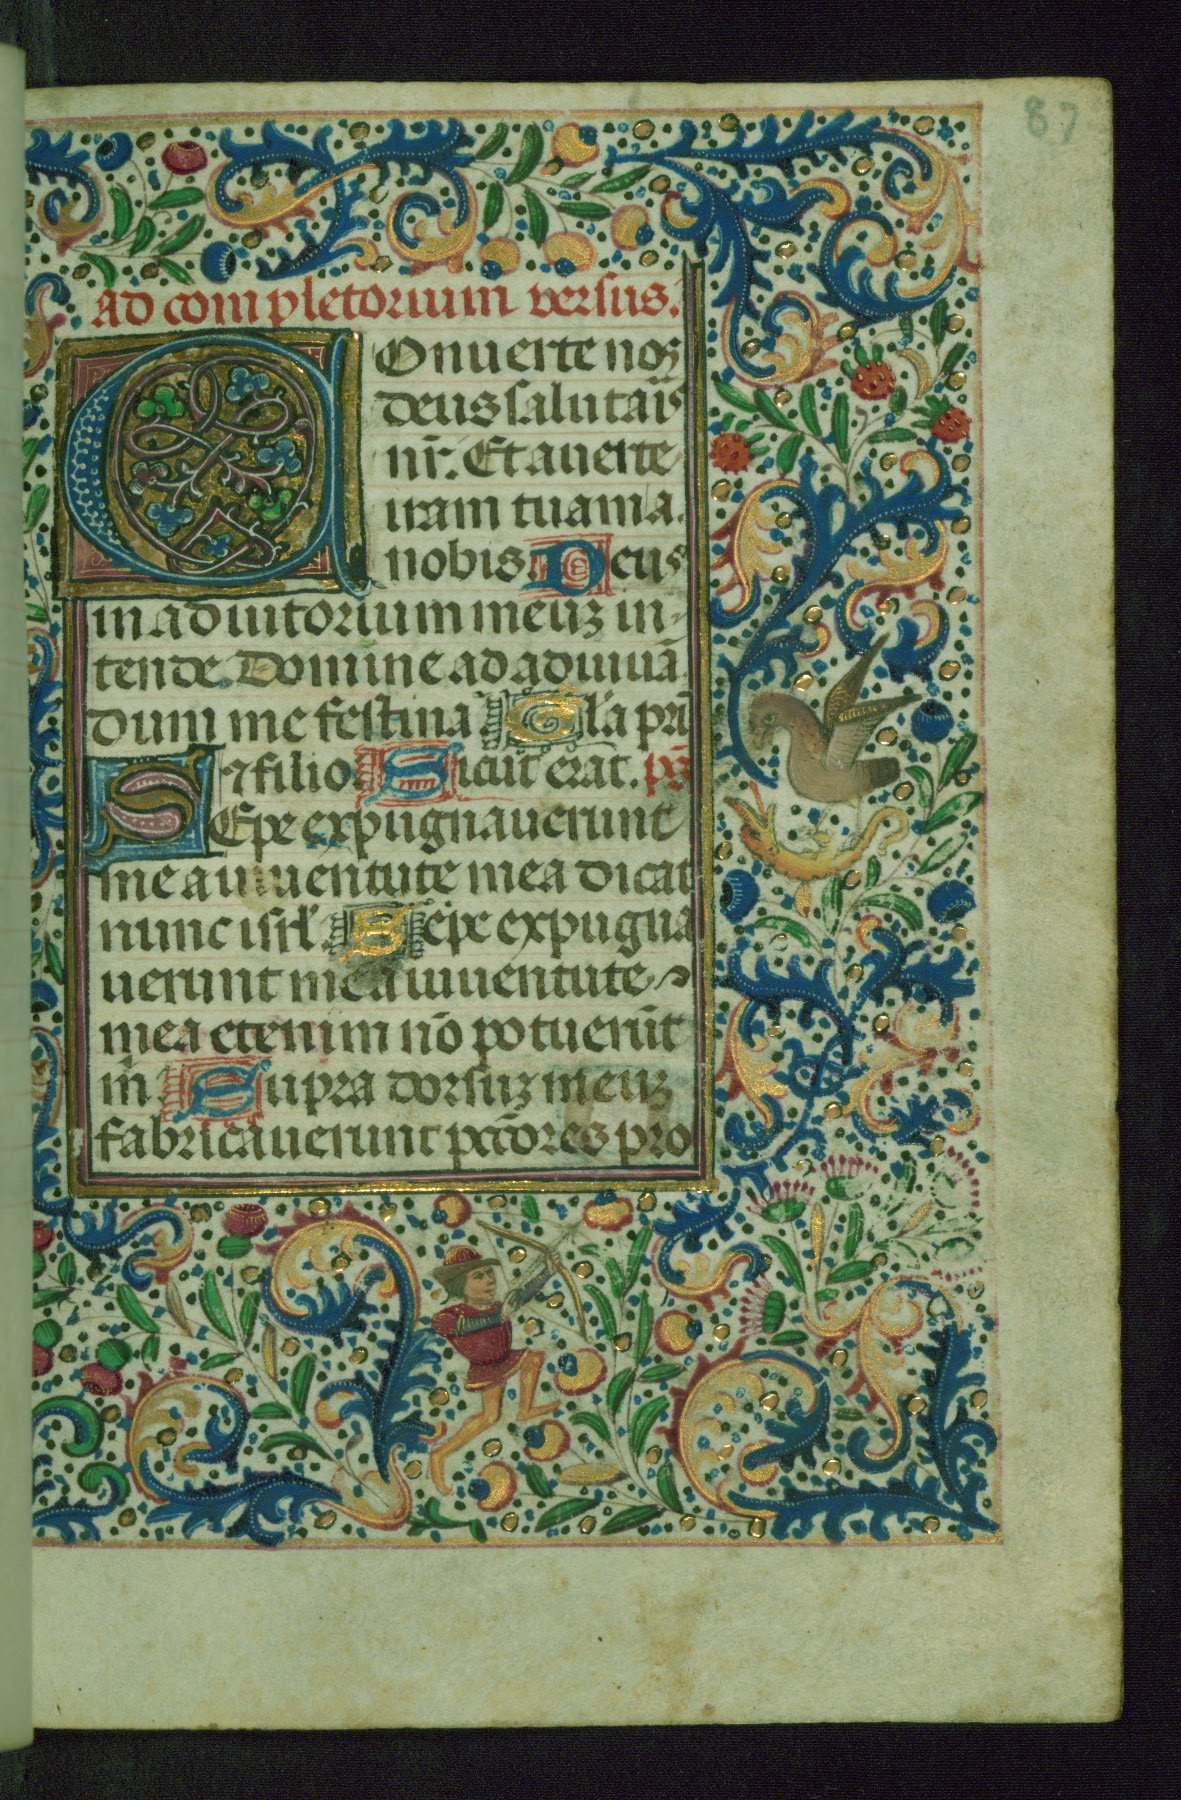 87
ad completorium versus.
Conuerte nos
deus salutaris
nr̄. Et auerte
iram tuam a
nobis Deus
in adiutorium meuz in-
tende. Domine ad adiuuā
dum me festina Gl̄a pri
⁊ filio Sicut erat. ps
Sepe expugnauerunt
me a iuuentute mea dicat
nunc isrl̄. Sepe expugna
uerunt me a iuuentute
mea etenim nō potuerūt
m̄ Supra dorsuz meuz
fabricauerunt pctōres pro